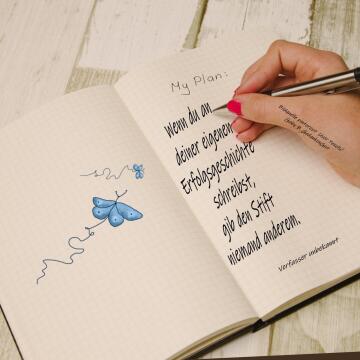 My Plan:
Wenn du an
deiner eigenen
Erfolgsgeschichte
schreibst,
gib den Stift
niemand anderem.
Verfasser unbekannt